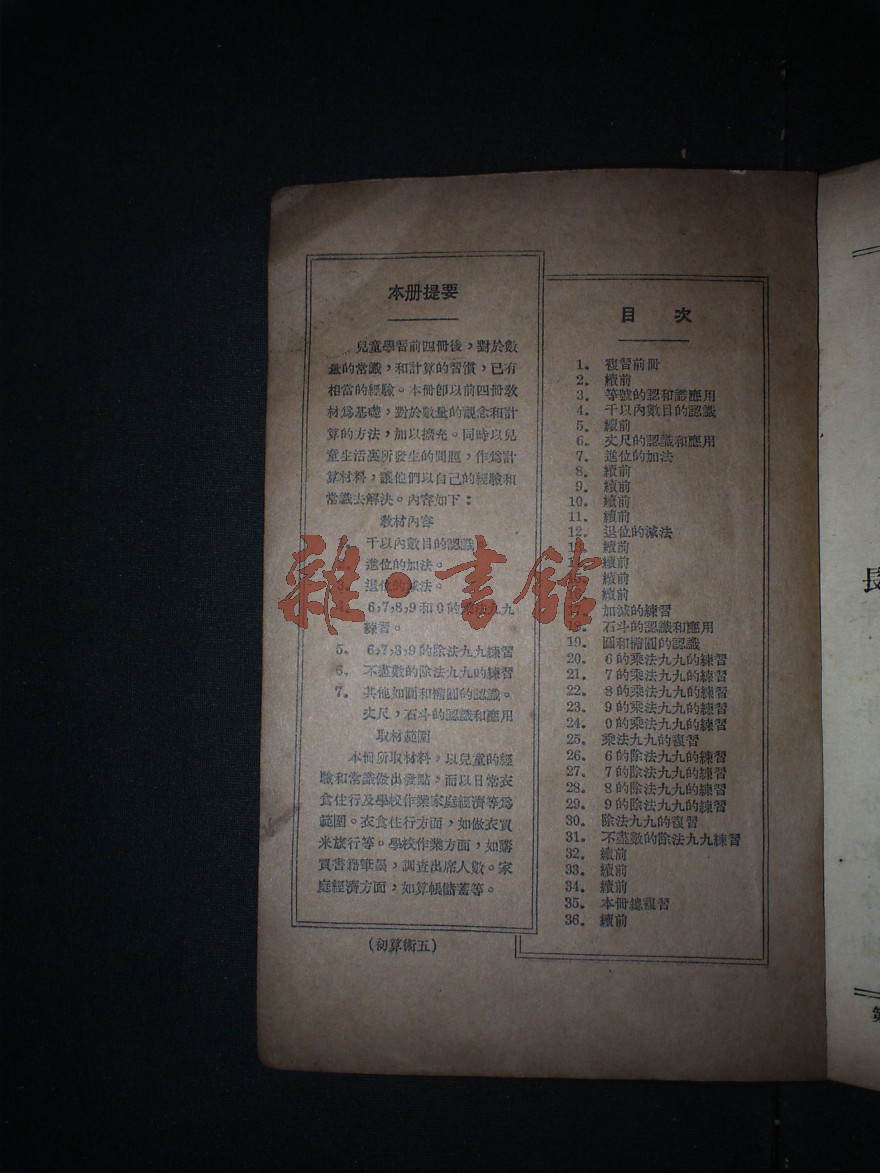 本册提要
兒童學習前四冊後，對於數
量的常識，和計算的習慣，已有
相當的經驗。本冊卽以前四冊教
材爲基礎，對於數量的觀念和計
算的方法，加以擴充。同時以兒
童生活裏所發生的問題，作爲計
算材料，讓他們以自己的經驗和
常識去解決。內容如下：
教材內容
千以內數目的認識。
進位的加法。
3. 退位的減法。
4. 6,7,8,9和0的乘法九九
練習。
5. 6,7,8,9的除法九九練習
6. 不盡數的除法九九的練習
7. 其他如圓和橢圓的認識。
丈尺，石斗的認識和應用
取材範圍
本冊所取材料，以兒童的經
驗和常識做出發點，而以日常衣
食住行及學校作業家庭經濟等爲
範圍。衣食住行方面，如做衣買
米旅行等。學校作業方面，如購
買書籍筆墨，調查出席人數。家
庭經濟方面，如算帳儲蓄等。
(初算術五)
目 次
1. 複習前冊
2. 續前
3. 等號的認和識應用
4. 千以內數目的認識
5. 續前
6. 丈尺的認識和應用
7. 進位的加法
8. 續前
9. 續前
10. 續前
11. 續前
12. 退位的減法
13. 續前
續前
續前
續前
17. 加減的練習
18. 石斗的認識和應用
19. 圓和橢圓的認識
20. 6的乘法九九的練習
21. 7的乘法九九的練習
22. 8的乘法九九的練習
23. 9的乘法九九的練習
24. 0的乘法九九的練習
25. 乘法九九的複習
26. 6的除法九九的練習
27. 7的除法九九的練習
28. 8的除法九九的練習
29. 9的除法九九的練習
30. 除法九九的複習
31. 不盡數的除法九九練習
32. 續前
33. 續前
34. 續前
35. 本冊總複習
36. 續前
長
雜·書館